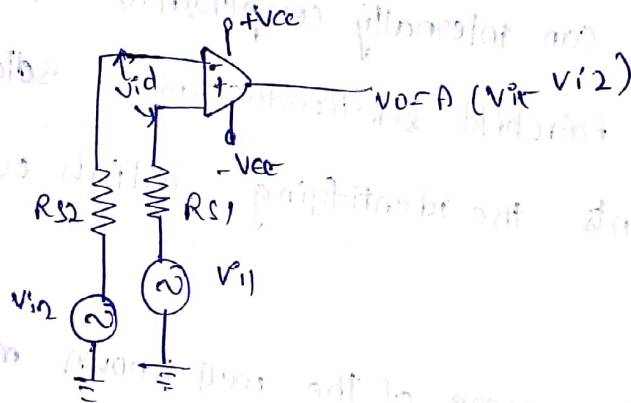 +VCC
Vid
-
+
VO = A (Vi1 - Vi2)
-VEE
RS2
RS1
Vi1
Vi2